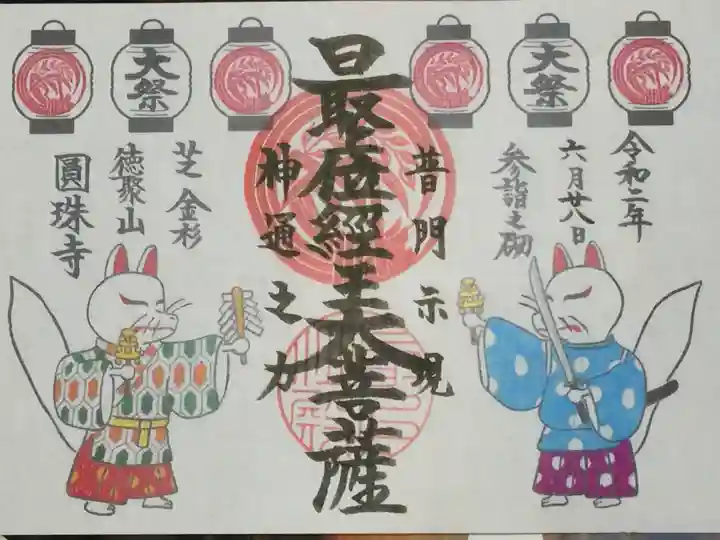 大祭
大祭
令和二年
六月廿八日
参詣之砌
普門示現
最位經王大菩薩
神通之力
芝 金杉
徳聚山
圓珠寺